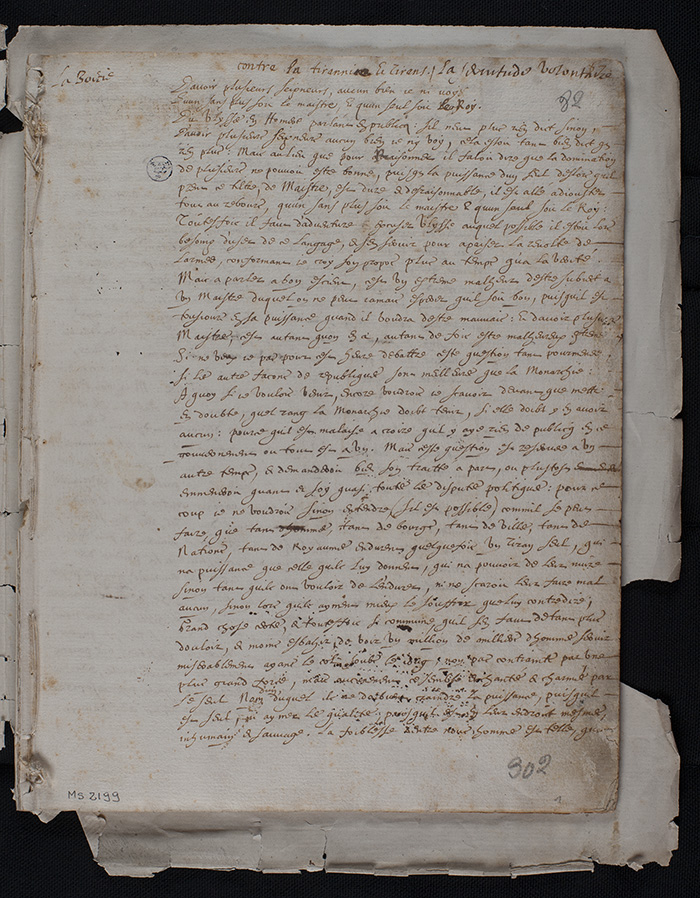 contre la tirannie & tirens / la servitude volontaire
La Boitie
82
D'avoir plusieurs seigneurs, aucun bien je ni voy
Quun sans plus soit le maistre, & quun seul soit le Roy.
Ulysse en Homere parlant en public: sil neut plus rien dict sinon,
D'avoir plusieurs seigneurs aucun bien je ny voy, cela estoit tant bien dict que
rien plus: Mais au lieu que pour Raisonner il faloit dire que la domination
de plusieurs ne pouvoit estre bonne, puisque la puissance dun seul deslors quil
prent ce tiltre de Maistre, est dure & desraisonnable, il est allé adiouster
tout au rebours, quun sans plus soit le maistre & quun seul soit le Roy:
Toutesfois il faut d'adventure excuser Ulysse auquel possible il estoit lors
besoing duser de ce langage, & sen servir pour apaiser la révolte de
Larmée, conformant ce croy son propos plus au temps qua la verité.
Mais a parler a bon escient, cest un extreme malheur destre subiect a
un Maistre duquel on ne peut iamais estre quil soit bon, puisquil est
tousiours en sa puissance quand il voudra destre mauvais: & davoir plusieurs
Maistres, cest autant quon en a, autant de fois estre malheureux
Si ne veux ie pas pour cest heure debattre ceste question tant pourmenée
si les autres facons de republique sont meilleures que la Monarchie:
A quoy si ie voulois venir, encore voudrois ie scavoir devant que mettre
en doubte, quel rang la Monarchie doibt tenir, si elle doibt y en avoir
aucun: pource quil est malaisé a croire quil y aye rien de public en ce
gouvernement ou tout est a un. Mais ceste question est reservée a un
autre temps, & demanderoit bien son traitté a part, ou plustost
emmeneroit quant & soy quasi toutes les disputes politiques: pour ce
coup ie ne voudrois sinon entendre (sil est possible) comme il se peut
faire, que tant d'hommes, tant de bourgs, tant de villes, tant de
Nations, tant de Royaumes endurent quelquefois un Tiran seul, qui
na puissance que celle quils luy donnent, qui na pouvoir de leur nuire
sinon tant quils ont vouloir de lendurer, ni ne scauroit leur faire mal
aucun, sinon lors quils ayment mieux le souffrir que luy contredire,
Grand chose certes, & toutesfois si commune, quil sen faut de tant plus
douloir, & moins esbahir, de voir un million de milliers d'hommes servir
miserablement ayant le col soubs le ioug, non par contrainte par une
plus grand force, mais aucunement ce semble enchantés & charmés par
le seul Nom duquel ils ne doibvent craindre la puissance, puisquil
est seul, ni aymer les qualités, puisquil est leur endroit
inhumain & sauvage. La foiblesse dentre nous hommes est telle,
302
MS 2199
1